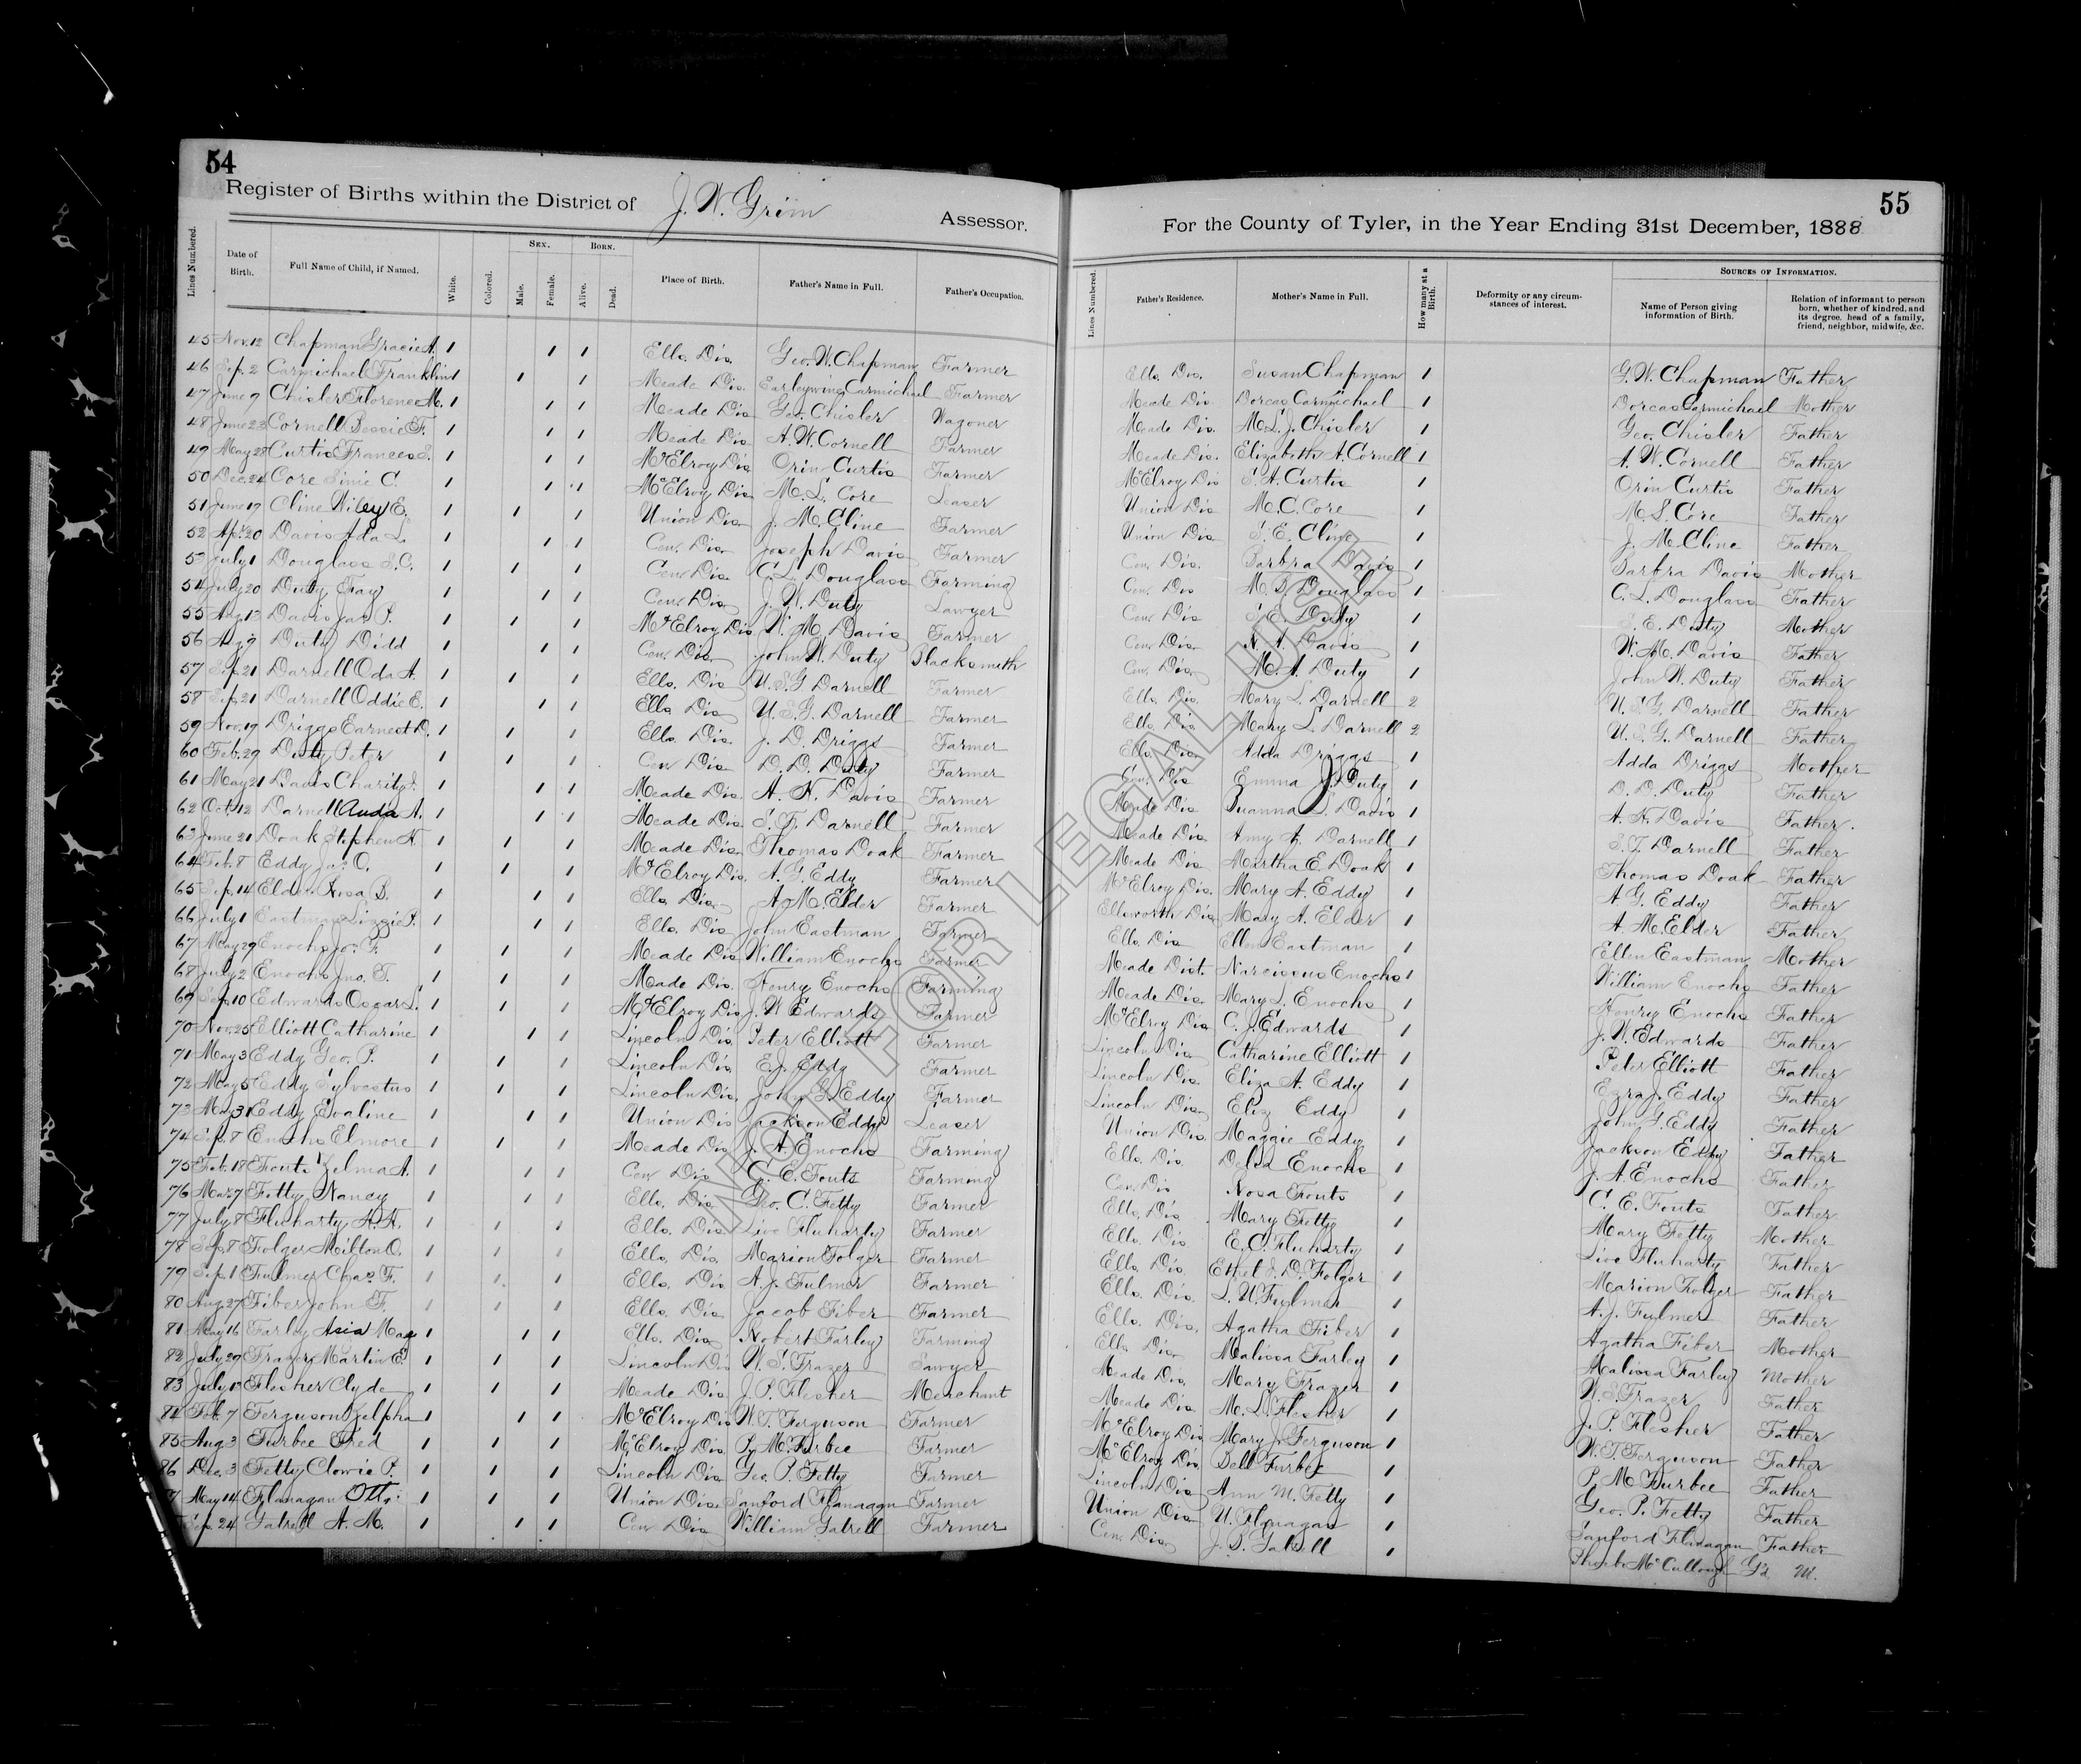 54
Register of Births within the District of J. W. Grim Assessor.
Lines Numbered. Date of Birth. Full Name of Child, if Named. White. Colored. Sex. Male. Female. Born. Alive. Dead. Place of Birth. Father's Name in Full. Father's Occupation.
45 Nov. 12 Chapman Gracie A. 1 1 1 Ells. Dis. Geo. W. Chapman Farmer
46 Sep. 2 Carmichael Franklin 1 1 1 Meade Dis. Earleywine Carmichael Farmer
47 June 9 Chisler Florence M. 1 1 1 Meade Dis Geo. Chisler Wagoner
48 June 23 Cornell Bessie F. 1 1 1 Meade Dis A. W. Cornell Farmer
49 May 28 Curtis Frances S. 1 1 1 McElroy Dis Orin Curtis Farmer
50 Dec. 24 Core C. 1 1 1 McElroy Dis M. L. Core Leaser
51 June 19 Cline Wiley E. 1 1 1 Union Dis J. M. Cline Farmer
52 Ap. 20 Davis Ada L. 1 1 1 Cen. Dis Joseph Davis Farmer
53 July 1 Douglass S. C. 1 1 1 Cen Dis. C. L. Douglass Farming
54 July 20 Duty Fay 1 1 1 Cen. Dis J. W. Duty Lawyer
55 Aug 13 Davis Jas. P. 1 1 1 McElroy Dis W. M. Davis Farmer
56 Aug 9 Duty Didd 1 1 1 Cen. Dis John W. Duty Blacksmith
57 Sep. 21 Darnell Oda A. 1 1 1 Ells. Dis U. S. G Darnell Farmer
58 Sep. 21 Darnell Oddie E. 1 1 1 Ells Dis U. S. G. Darnell Farmer
59 Nov. 19 Driggs Earnest D. 1 1 1 Ells. Dis. J. D. Driggs Farmer
60 Feb. 29 Duty Peter 1 1 1 Cen Dis D. D. Duty Farmer
61 May 21 Davis Charity 1 1 1 Meade Dis. A. H. Davis Farmer
62 Oct. 12 Darnell Auda A. 1 1 1 Meade Dis S. F. Darnell Farmer
63 June 21 Doak Stephen H. 1 1 1 Meade Dis Thomas Doak Farmer
64 Feb. 8 Eddy Jas. O. 1 1 1 McElroy Dis. A. G. Eddy Farmer
65 Sep. 14 Elder Rosa B. 1 1 1 Ells Dis A. M. Elder Farmer
66 July 1 Eastman Lizzie P. 1 1 1 Ells. Dis John Eastman Farmer
67 May 29 Enochs Jo. F. 1 1 1 Meade Dis William Enochs Farmer
68 July 2 Enochs Jno. T. 1 1 1 Meade Dis. Henry Enochs Farming
69 Sep. 10 Edwards Oscar L. 1 1 1 McElroy Dis J. W Edwards Farmer
70 Nov. 25 Elliott Catharine 1 1 1 Lincoln Dis Peter Elliott Farmer
71 May 3 Eddy Geo. P. 1 1 1 Lincoln Dis E. J. Eddy Farmer
72 May 5 Eddy Sylvestus 1 1 1 Lincoln Dis. John G. Eddy Farmer
73 May 31 Eddy Evaline 1 1 1 Union Dis Jackson Eddy Leaser
74 Sep. 8 Enochs Elmore 1 1 1 Meade Dis J. A. Enochs Farming
75 Feb. 18 Fouts Zelma A. 1 1 1 Cen Dis C. E. Fouts Farming
76 Mar. 7 Fetty Nancy 1 1 1 Ells. Dis Geo. C. Fetty Farmer
77 July 8 Fluharty A. H. 1 1 1 Ells. Dis Fluharty Farmer
78 Sep. 8 Folger Milton O. 1 1 1 Ells. Dis. Marion Folger Farmer
79 Sep. 1 Fulmer Chas. F. 1 1 1 Ells. Dis A. J. Fulmer Farmer
80 Aug. 27 Fiber John F. 1 1 1 Ells. Dis Jacob Fiber Farmer
81 May 16 Farley Asia May 1 1 1 Ells. Dis Robert Farley Farming
82 July 29 Frazer Martin E. 1 1 1 Lincoln Dis W. S. Frazer Sawyer
83 July 13 Flesher Clyde 1 1 1 Meade Dis J. P. Flesher Merchant
84 Feb. 7 Ferguson Zelpha 1 1 1 McElroy Dis W. T. Ferguson Farmer
85 Aug 3 Furbee Fred 1 1 1 McElroy Dis. P. M. Furbee Farmer
86 Dec. 3 Fetty Clowie P. 1 1 1 Lincoln Dis Geo. P. Fetty Farmer
7 May 14 Flanagan Otto 1 1 1 Union Dis. Sanford Flanagan Farmer
Sep. 24 Gatrell A. M. 1 1 1 Cen Dis William Gatrell Farmer
55
For the County of Tyler, in the Year Ending 31st December, 1888
Lines Numbered. Father's Residence. Mother's Name in Full. How many at a Birth. Deformity or any circumstances of interest. Sources of Information. Name of Person giving information of Birth. Relation of informant to person born, whether of kindred, and its degree, head of a family, friend, neighbor, midwife, &c.
Ells. Dis. Susan Chapman 1 G. W. Chapman Father
Meade Dis Dorcas Carmichael 1 Dorcas Carmichael Mother
Meade Dis. M. L. J. Chisler 1 Geo. Chisler Father
Meade Dis. Elizabeth A. Cornell 1 A. W. Cornell Father
McElroy Dis S. A. Curtis 1 Orin Curtis Father
Union Dis M. C. Core 1 M. L. Core Father
Union Dis S. E. Cline 1 J. M. Cline Father
Cen. Dis. Barbra Davis 1 Barbra Davis Mother
Cen. Dis M. D. Douglass 1 C. L. Douglass Father
Cen. Dis S. E. Duty 1 S. E. Duty Mother
Cen. Dis N. A. Davis 1 W. M. Davis Father
Cen. Dis. M. A. Duty 1 John W. Duty Father
Ells. Dis. Mary L. Darnell 2 U. S. G. Darnell Father
Ells. Dis Mary L. Darnell 2 U. S. G. Darnell Father
Ells. Dis Adda Driggs 1 Adda Driggs Mother
Cen. Dis Emma J. Duty 1 D. D. Duty Father
Meade Dis Davis 1 A. H. Davis Father.
Meade Dis. Amy A. Darnell 1 S. F. Darnell Father
Meade Dis Martha E. Doak 1 Thomas Doak Father
McElroy Dis. Mary A. Eddy 1 A G. Eddy Father
Ellsworth Dis Mary A. Elder 1 A. M. Elder Father
Ells. Dis Ellen Eastman 1 Ellen Eastman Mother
Meade Dist. Narcissus Enochs 1 William Enochs Father
Meade Dis. Mary L. Enochs 1 Henry Enochs Father
McElroy Dis C. J. Edwards 1 J. W. Edwards Father
Lincoln Dis Catharine Elliott 1 Peter Elliott Father
Lincoln Dis. Eliza A. Eddy 1 Ezra J. Eddy Father
Lincoln Dis Eliz Eddy 1 John G. Eddy Father
Union Dis. Maggie Eddy 1 Jackson Eddy Father
Ells. Dis. Delia Enochs 1 J. A. Enochs Father
Cen Dis Rosa Fouts 1 C. E. Fouts Father
Ells. Dis. Mary Fetty 1 Mary Fetty Mother
Ells. Dis E. C. Fluharty 1 Fluharty Father
Ells. Dis. Ethel S. D. Folger 1 Marion Folger Father
Ells. Dis. L. U. Fulmer 1 A. J. Fulmer Father
Ells. Dis. Agatha Fiber 1 Agatha Fiber Mother
Ells Dis. Malissa Farley 1 Malissa Farley Mother
Meade Dis. Mary Frazer 1 W. S. Frazer Father
Meade Dis. M. L. Flesher 1 J. P. Flesher Father
McElroy Dis Mary J. Ferguson 1 W. T. Ferguson Father
McElroy Dis. Bell Furbee 1 P. M. Furbee Father
Lincoln Dis Ann M. Fetty 1 Geo. P. Fetty Father
Union Dis U. Flanagan 1 Sanford Flanagan Father
Cen. Dis J. B. Gatrell 1 Phoebe McCullough Gd. M.
NOT FOR LEGAL USE